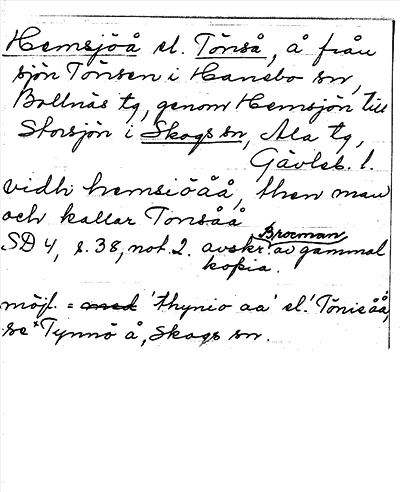 Hemsjöå el. Tönså, å från
sjön Tönsen i Hanebo sn,
Bollnäs tg, genom Hemsjön till
Storsjön i Skogs sn, Ala tg,
Gävleb. l.
vidh hemsiöåå, then man
och kallar Tonsåå
SD 4, s. 38, not 2. avskr. Broman av gammal
kopia.
möjl. = and 'thynio aa' el. 'Töniсåå',
se × Tynnö å, Skogs sn.